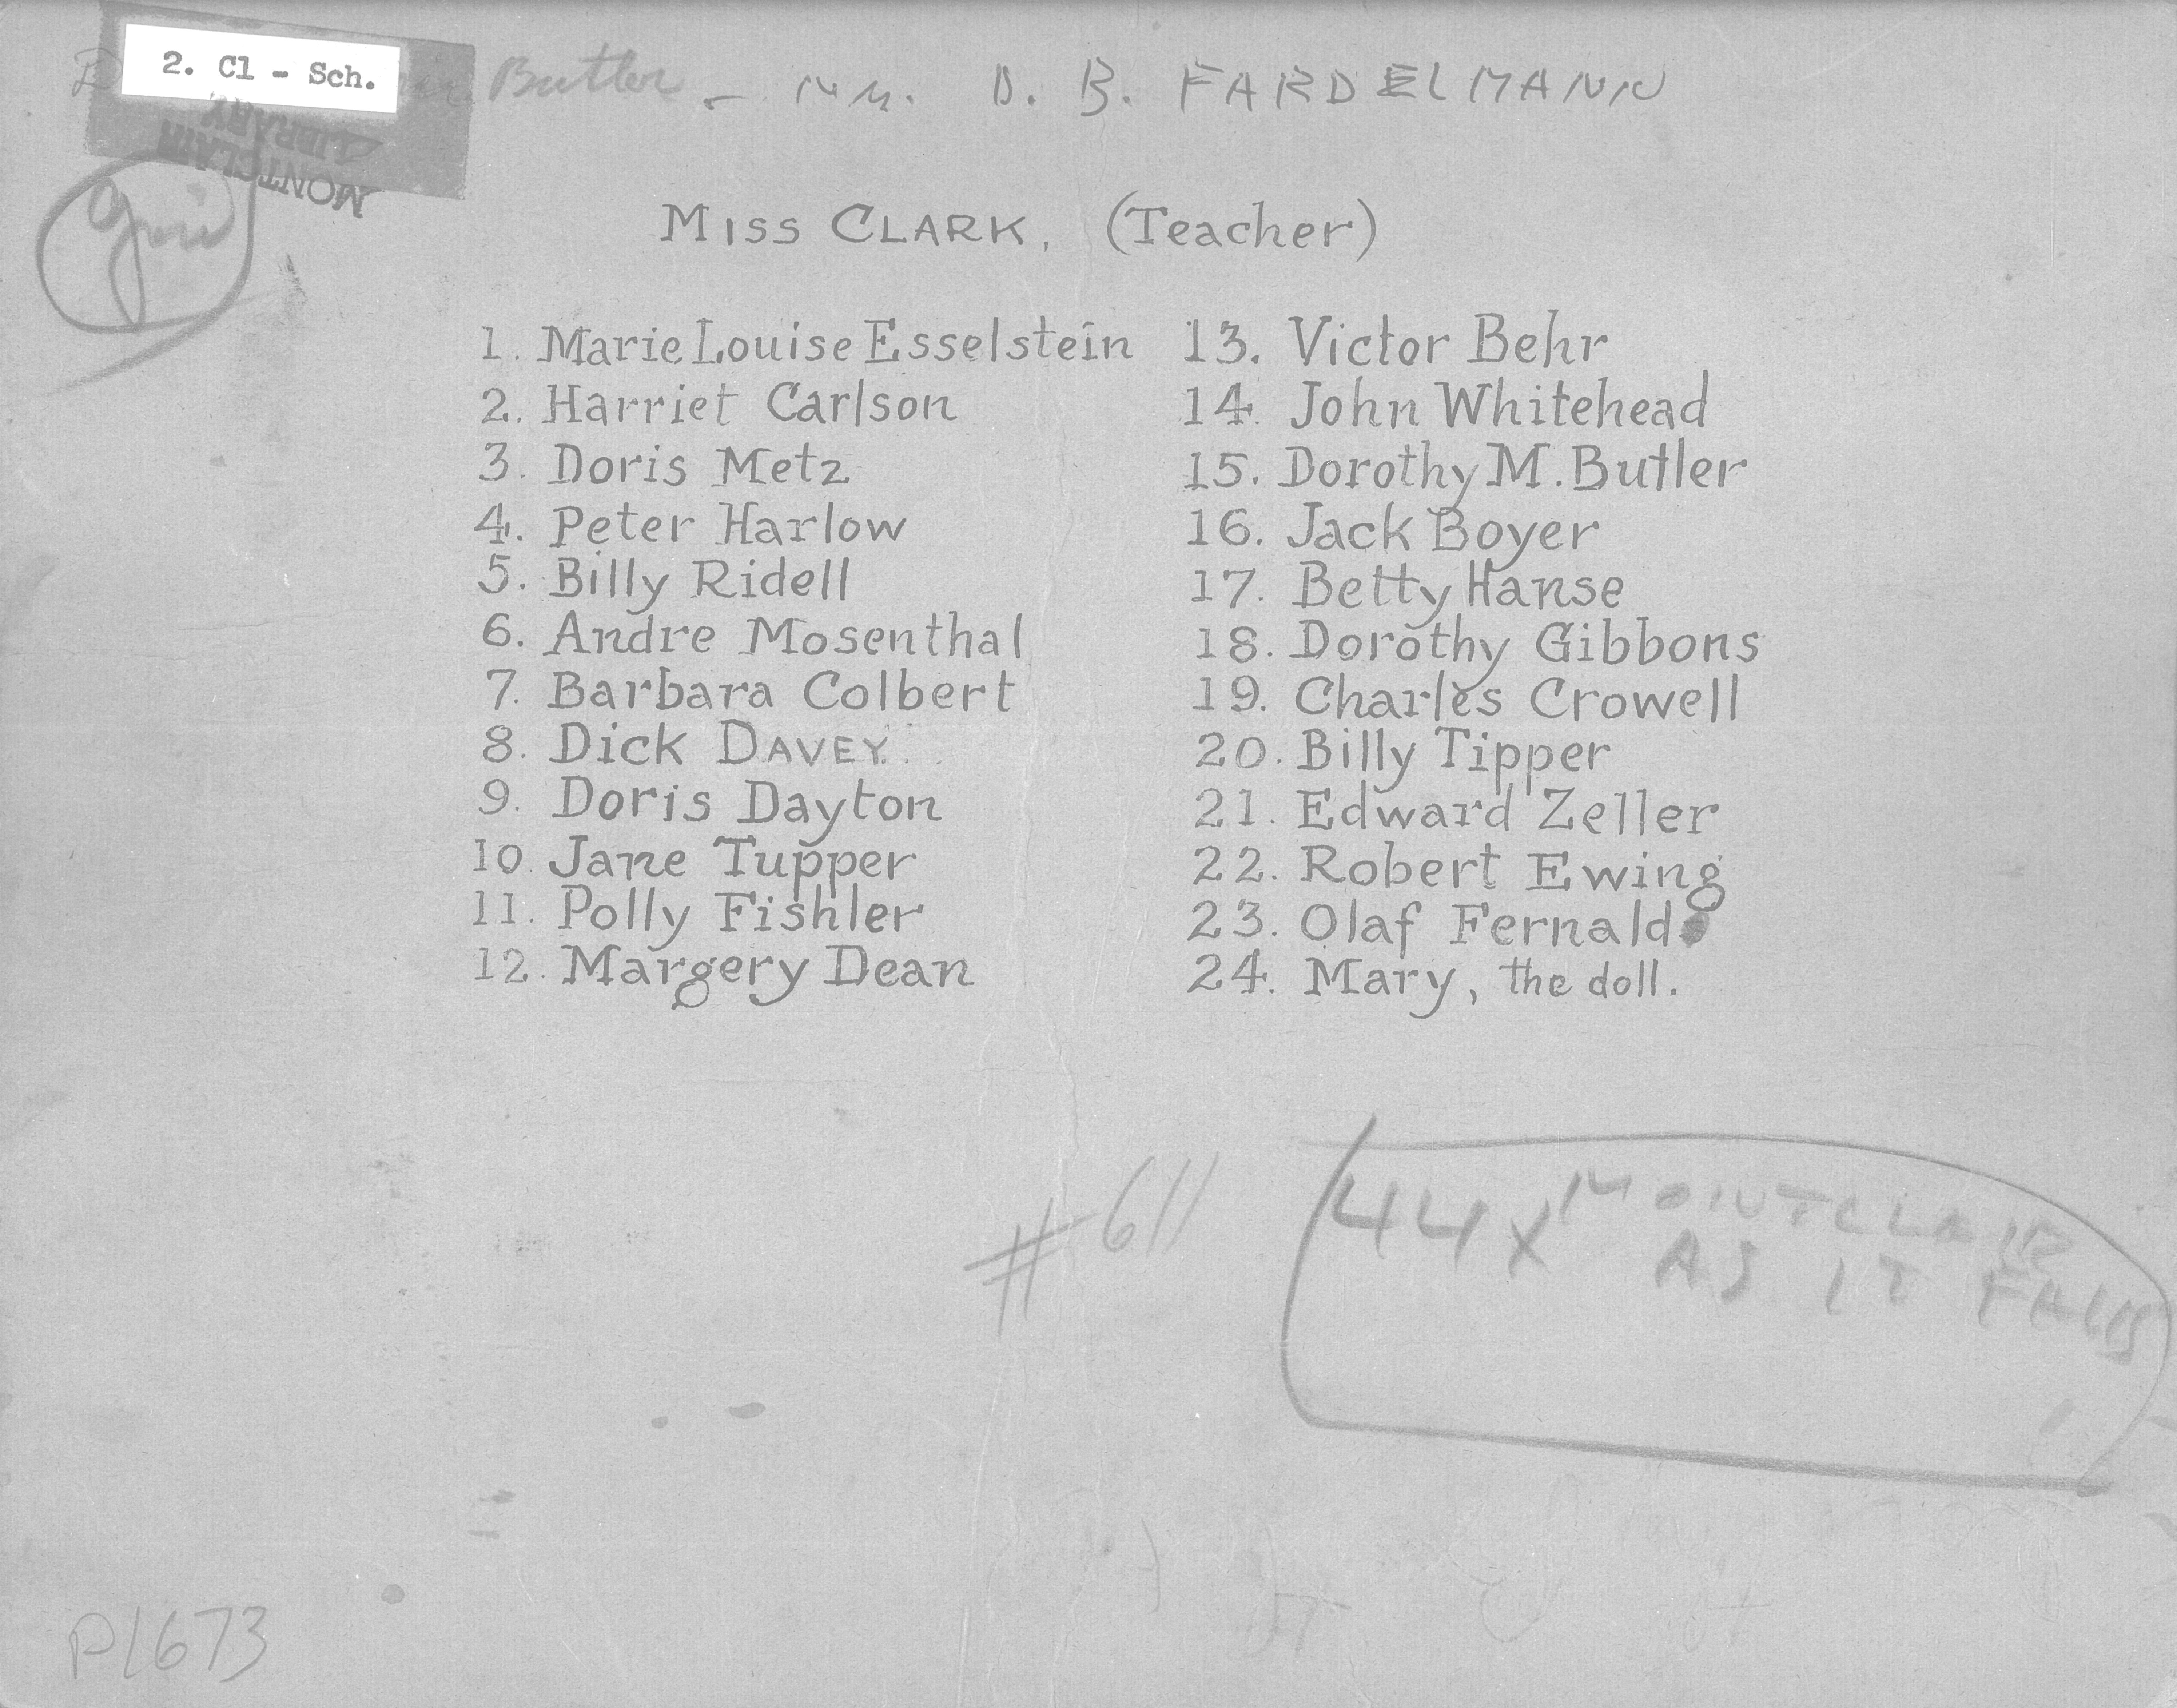 2. Cl - Sch.
Butler - D. B. FARDELMANN
MONTCLAIR
LIBRARY
MISS CLARK, (Teacher)
1. Marie Louise Esselstein
2. Harriet Carlson
3. Doris Metz
4. Peter Harlow
5. Billy Ridell
6. Andre Mosenthal
7. Barbara Colbert
8. Dick DAVEY.
9. Doris Dayton
10. Jane Tupper
11. Polly Fishler
12. Margery Dean
13. Victor Behr
14. John Whitehead
15. Dorothy M. Butler
16. Jack Boyer
17. Betty Hanse
18. Dorothy Gibbons
19. Charles Crowell
20. Billy Tipper
21. Edward Zeller
22. Robert Ewing
23. Olaf Fernald
24. Mary, the doll.
#611
44x MONTCLAIR
AS IT
P1673